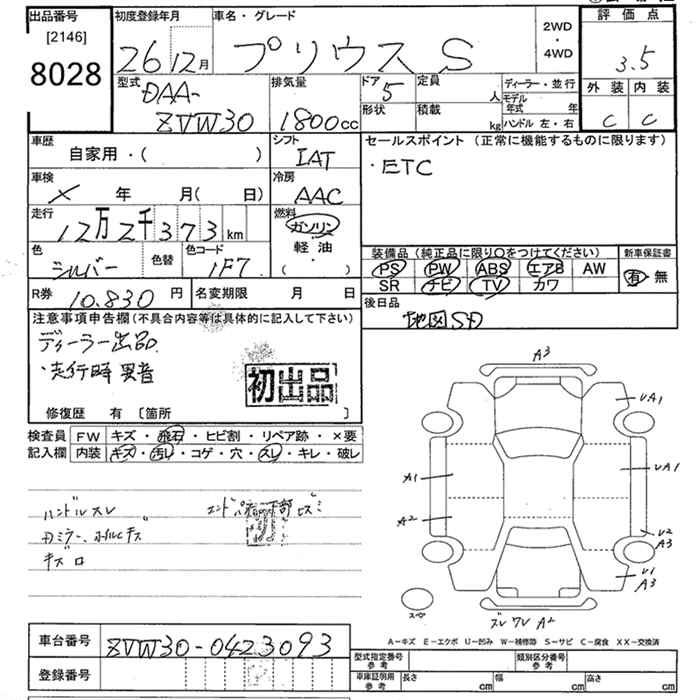 出品番号
[2146]
8028
初度登録年月
26 12月
車名・グレード
プリウス S
2WD
・
4WD
評価点
3.5
外装 内装
C C
型式
DAA-
ZVW30
排気量
1800cc
ドア
5
形状
定員
人
積載
kg
ディーラー・並行
モデル年式 年
ハンドル 左・右
車歴
自家用・( )
シフト
IAT
車検
× 年 月( 日)
冷房
AAC
走行
12万2千373km
燃料
ガソリン
軽油
・( )
色
シルバー
色替
色コード
1F7
セールスポイント (正常に機能するものに限ります)
・ETC
装備品(純正品に限り○をつけてください)
PS PW ABS エアB AW
SR ナビ TV カワ
新車保証書
有 無
R券
10.830円
名変期限 月 日
後日品
地図SD
注意事項申告欄(不具合内容等は具体的に記入して下さい)
ディーラー出品
・走行時異音
初出品
修復歴 有 〔箇所 〕
検査員記入欄
FW キズ・飛石・ヒビ割・リペア跡・×要
内装 キズ・汚レ・コゲ・穴・スレ・キレ・破レ
ハンドルスレ
キズロ
A3
UA1
A1
UA1
A2
U2
A3
U1
A3
スペア
A2
A-キズ E-エクボ U-凹み W-補修跡 S-サビ C-腐食 XX-交換済
車台番号
ZVW30-0423093
登録番号
型式指定番号
参考
類別区分番号
参考
車庫証明用
参考
長さ cm
幅 cm
高さ cm